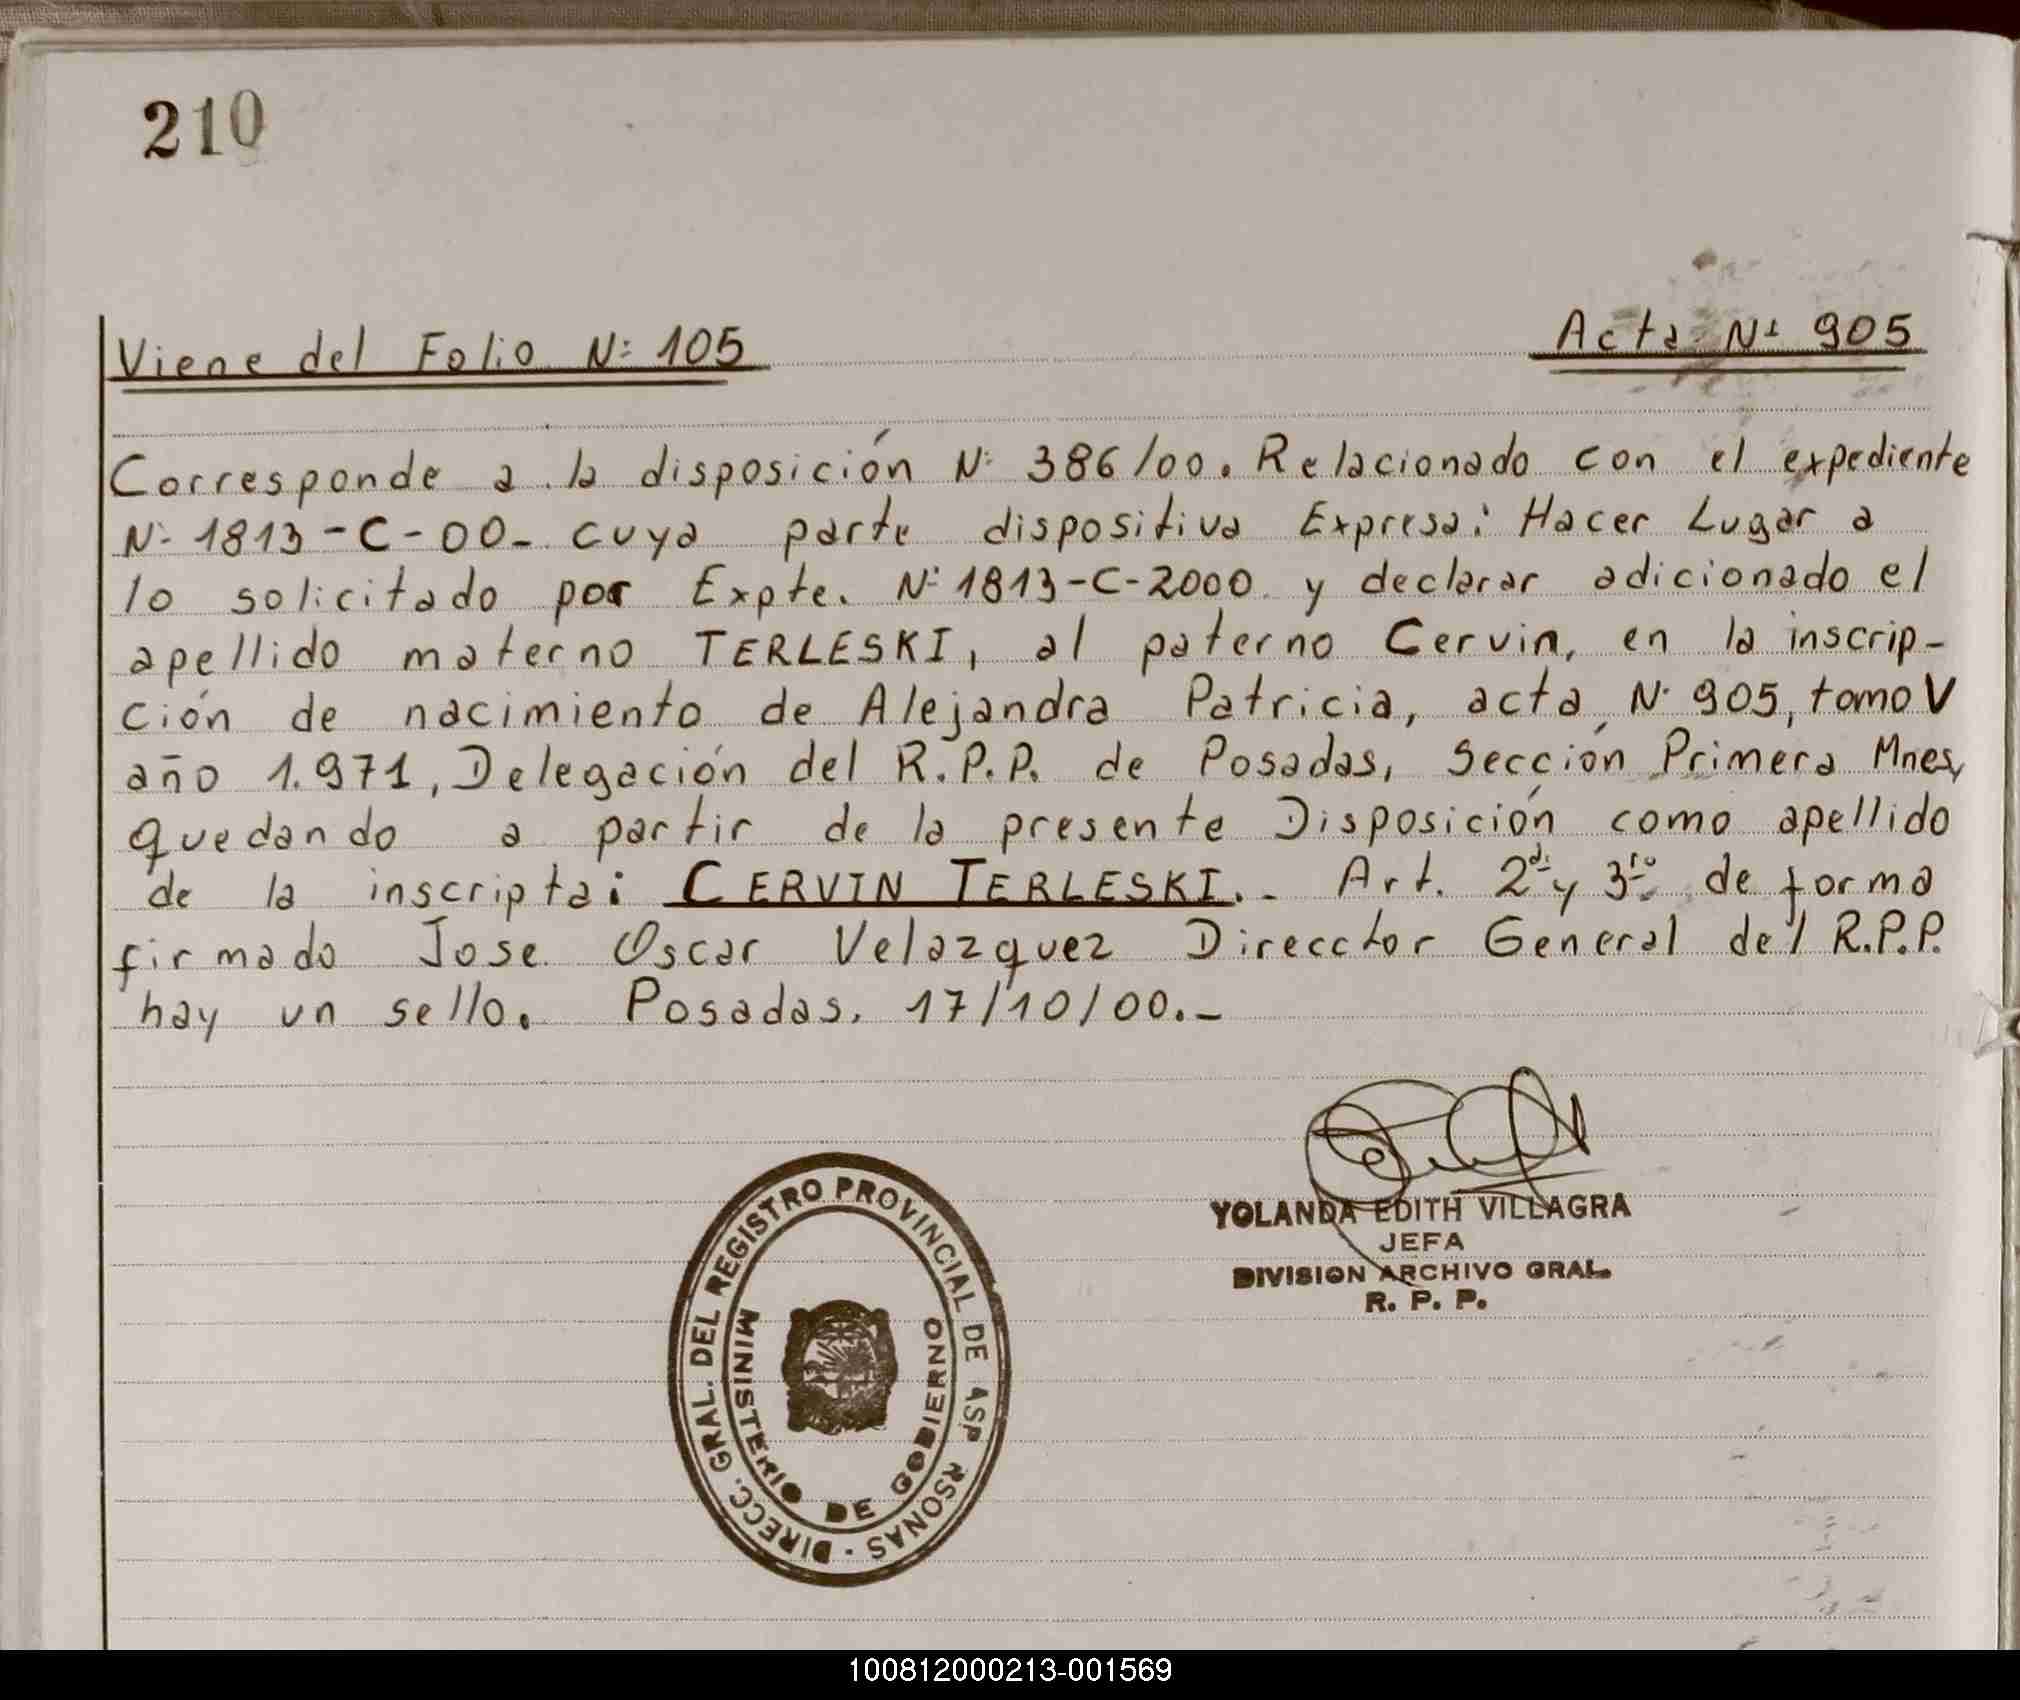 210
Viene del Folio Nº 105
Acta Nº 905
Corresponde a la disposición Nº 386/00. Relacionado con el expediente
Nº 1813-C-00-. cuya parte dispositiva Expresa: Hacer Lugar a
lo solicitado por Expte. Nº 1813-C-2000 y declarar adicionado el
apellido materno TERLESKI, al paterno Cervin, en la inscrip-
ción de nacimiento de Alejandra Patricia, acta Nº 905, tomo V
año 1.971, Delegación del R.P.P. de Posadas, Sección Primera Mnes,
quedando a partir de la presente Disposición como apellido
de la inscripta: CERVIN TERLESKI.- Art. 2do y 3ro de forma
firmado Jose Oscar Velazquez Direcctor General del R.P.P.
hay un sello. Posadas, 17/10/00.-
YOLANDA EDITH VILLAGRA
JEFA
DIVISION ARCHIVO GRAL.
R. P. P.
DIRECC. GRAL. DEL REGISTRO PROVINCIAL DE ASP RSONAS -
MINISTERIO DE GOBIERNO
100812000213-001569